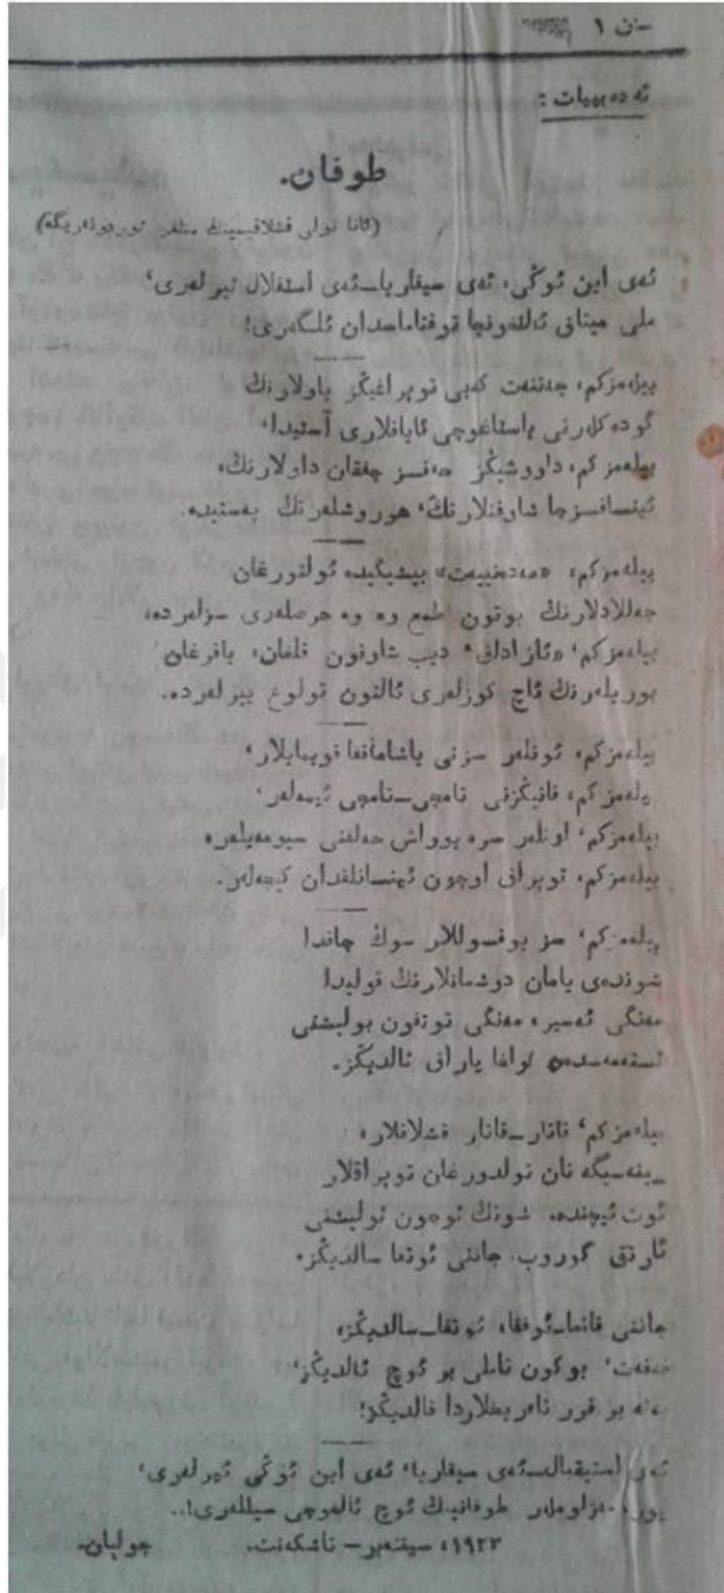 ـن ١
ئەدەبیات:
طوفان.
(ئانا تولی قشلاقیسینڭ مظفر توردولەریگە)
ئەی این ئوڭی، ئەی سیقاریا—ئەی استقلال ئیرلەری،
ملی میثاق ئالغونچا توقتاماسدان ئلگەری!
بیلەمزکم، جەننەت کەبی توپراغیڭز یاولارنڭ
گودەکلەرنی باستاغوچی ئایاقلاری آستیدا،
بیلەمزکم، داووشیڭز حەقسز چققان داولارنڭ،
ئینسافسزچا شاوقنلارنڭ، هوروشلەرنڭ پەستیدە.
بیلەمزکم، «مەدەنییەت» بیشیگیدە ئولتورغان
جەللادلارنڭ بوتون طمع وە حرصلەری سزلەردە،
بیلەمزکم، «ئازادلق» دیب شاوقون قلغان، باقرغان
بوریلەرنڭ ئاچ کوزلەری ئالتون تولوغ ییرلەردە.
بیلەمزکم، ئوقلەر سزنی یاشاماققا قویمایلار،
ـلەمزکم، قانیڭزنی تامچی—تامچی ئیمەلەر،
بیلەمزکم، اونلەر سرە یوواش حەلقنی سیومەیلەر،
بیلەمزکم، توپراق اوچون ئینسانلقدان کیچەلەر.
بیلەمزکم، سز یوقسوللار سوڭ چاغدا
شوندەی یامان دوشمانلارنڭ قولیدا
مەنگی ئەسیر، مەنگی توتقون بولیشنی
ئستەمەسدەن قولغا یاراق ئالدیڭز.
بیلەمزکم، قاتار—قاتار قشلاقلار،
ـینەسیگە نان تولدورغان توپراقلار
ئوت ئیچندە. شونڭ ئوچون ئولیشنی
ئارتق گوروب، جاننی ئوتقا سالدیڭز.
جاننی قانغا—ئوققا، ئوتقا—سالدیڭز،
بوکون ئانلی بر ئوچ ئالدیڭز،
بر قزر تاەریخلاردا قالدیڭز!
ئەی استیقبال—ئەی سیقاریا، ئەی این ئوڭی ئیرلەری،
یورە مەزلوملەر طوفانینڭ ئوچ ئالغوچی سیللەری!..
١٩٢٢، سینتەبر — تاشکەنت. چولپان.